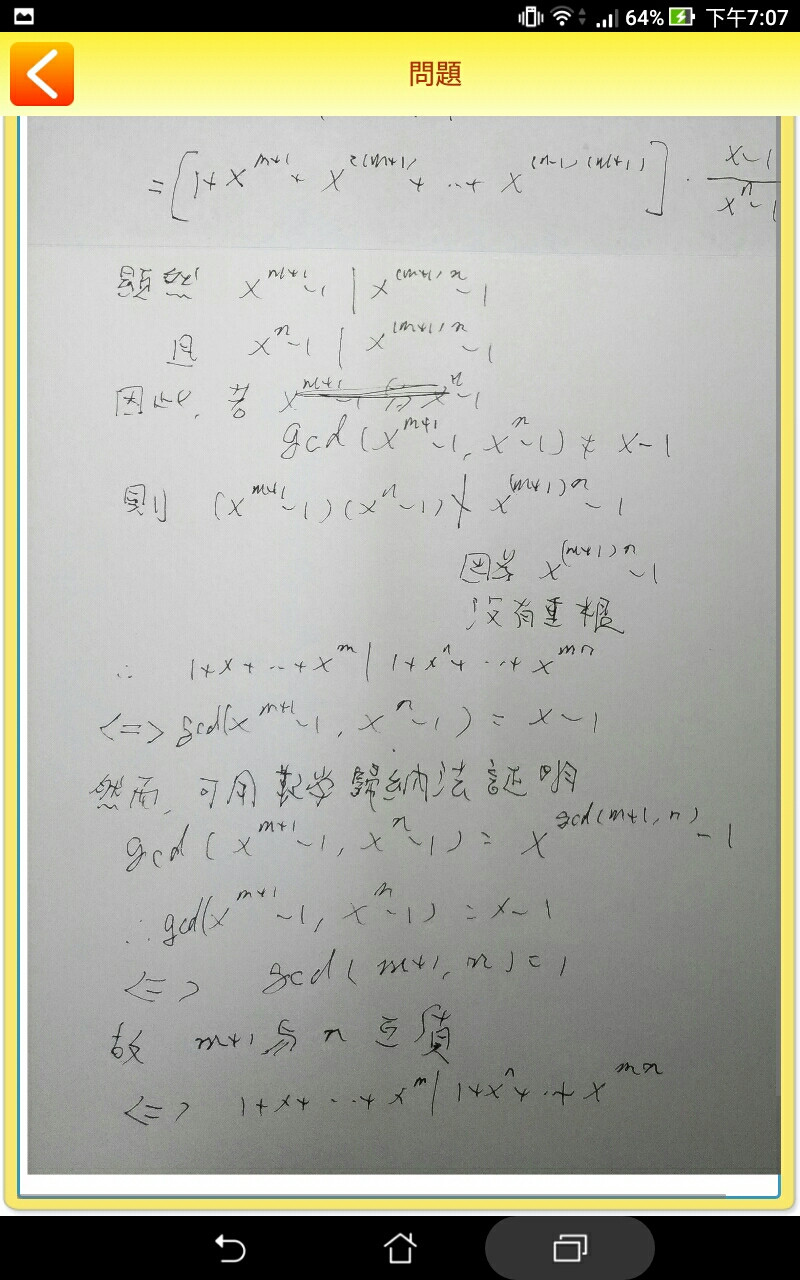 64% 下午7:07
問題
=[1+x^{m+1}+x^{2(m+1)}+...+x^{(n-1)(m+1)}]·\frac{x-1}{x^n-1}
顯然 x^{m+1}-1 | x^{(m+1)n}-1
且 x^n-1 | x^{(m+1)n}-1
因此, 若
gcd(x^{m+1}-1, x^n-1) ≠ x-1
則 (x^{m+1}-1)(x^n-1) ∤ x^{(m+1)n}-1
因為 x^{(m+1)n}-1
沒有重根
∴ 1+x+...+x^m | 1+x^n+...+x^{mn}
<=> gcd(x^{m+1}-1, x^n-1) = x-1
然而, 可用數學歸納法証明
gcd(x^{m+1}-1, x^n-1) = x^{gcd(m+1,n)}-1
∴ gcd(x^{m+1}-1, x^n-1) = x-1
<=> gcd(m+1, n) = 1
故 m+1與n互質
<=> 1+x+...+x^m | 1+x^n+...+x^{mn}